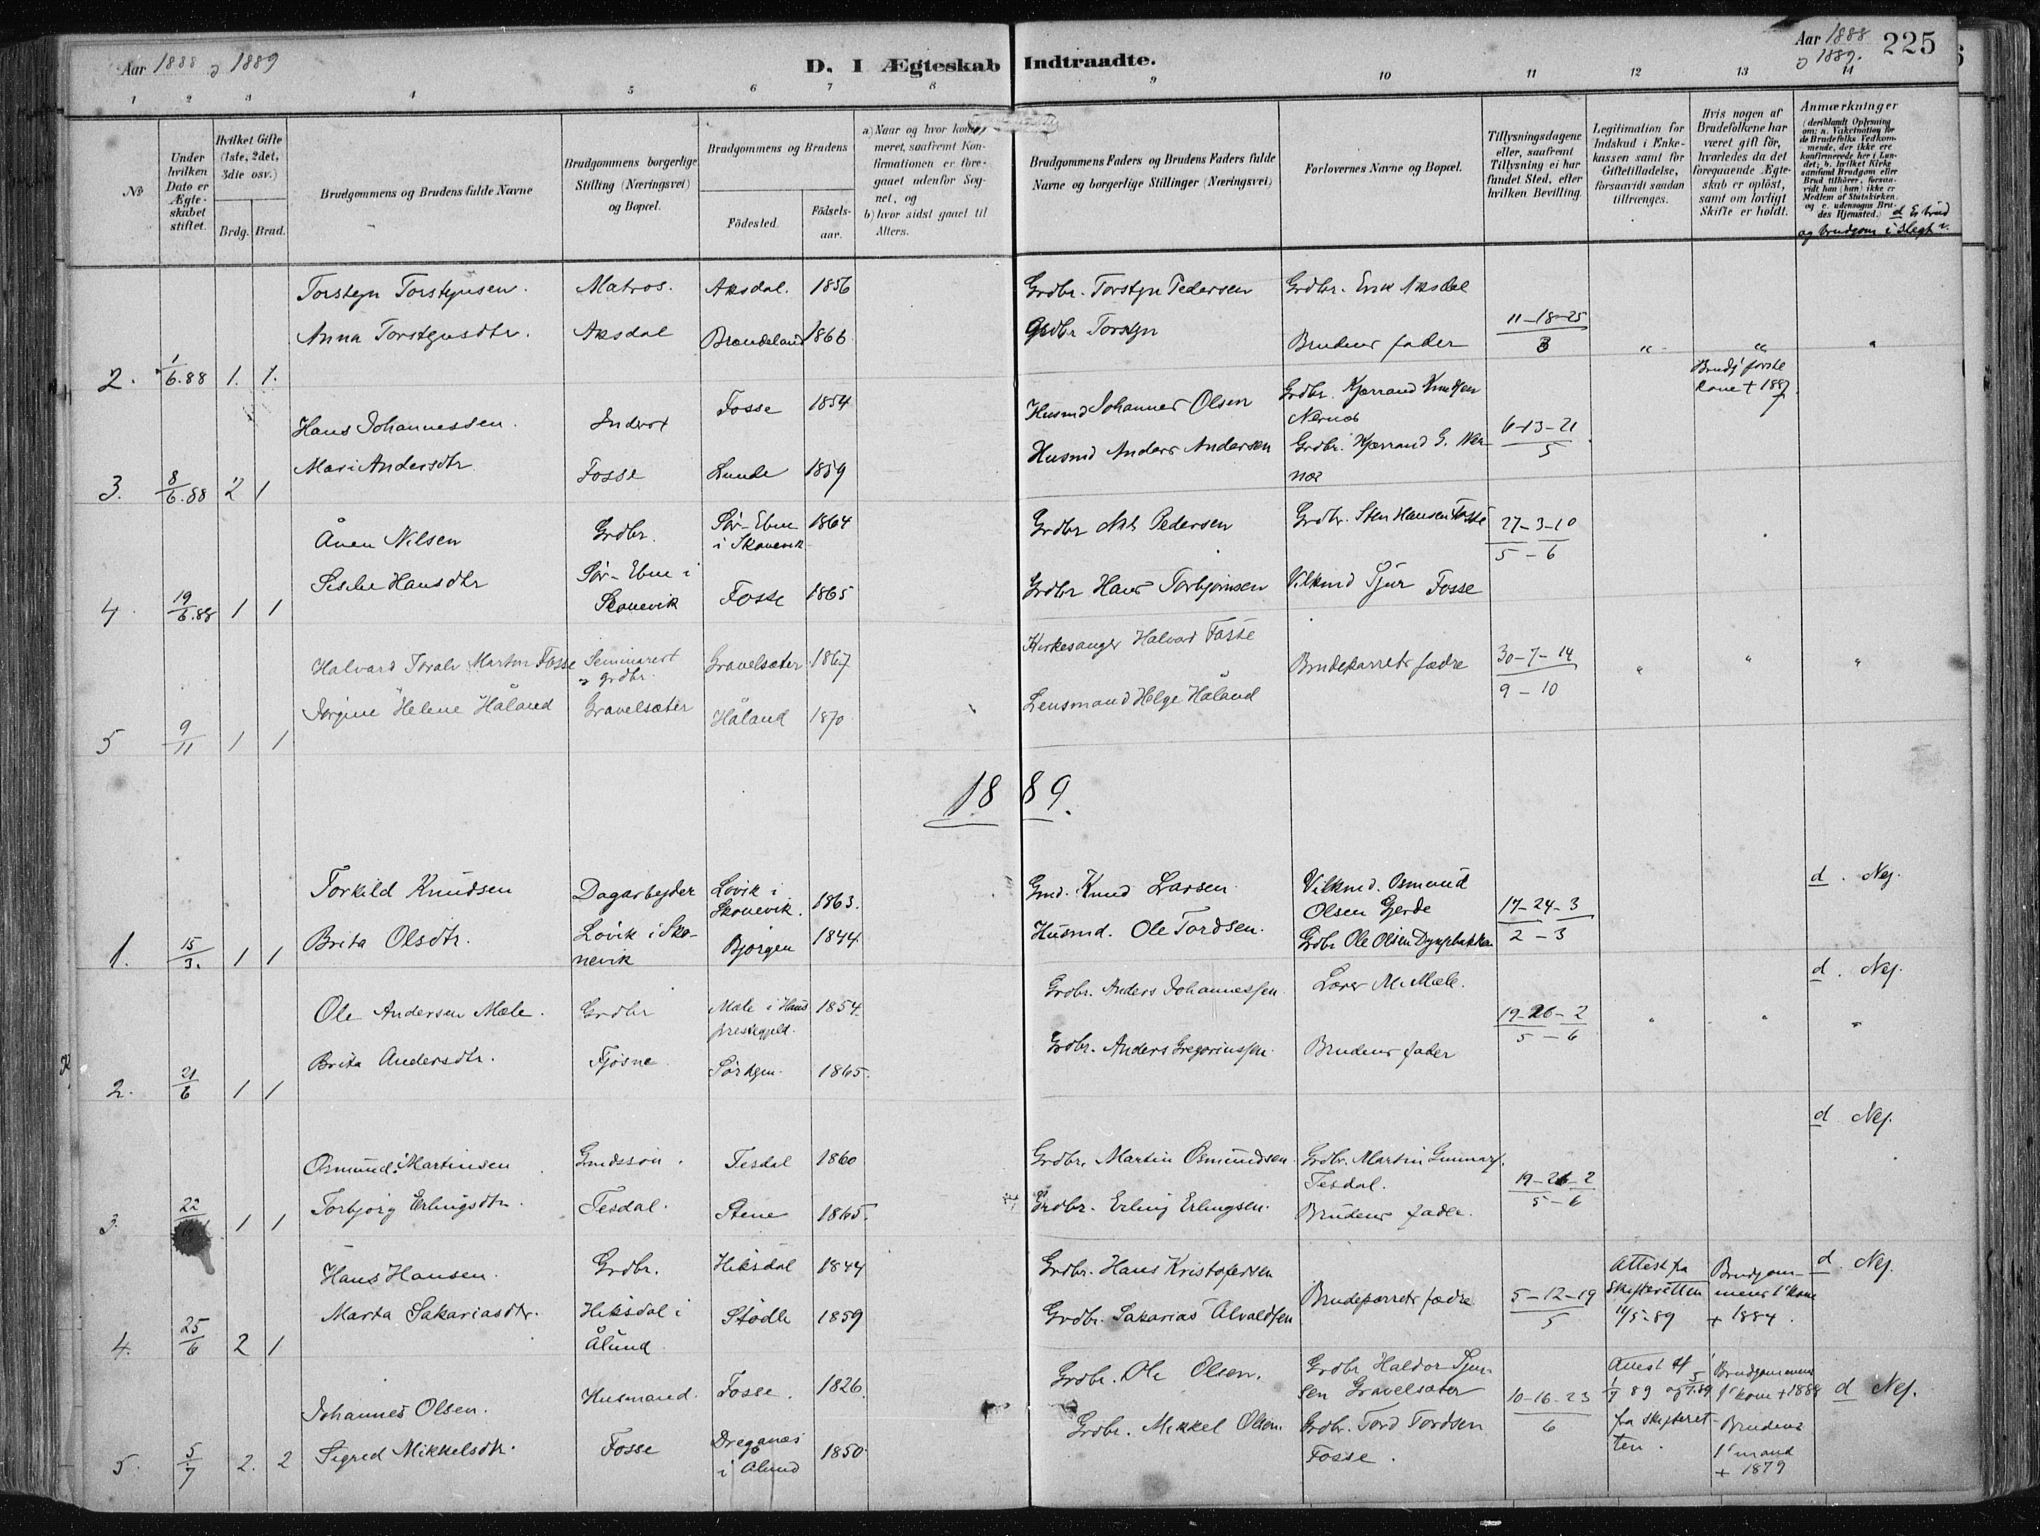 Aar 1888 og 1889
D. I Ægteskab Indtraadte.
Aar 1888 og 1889.
225
1 2 3 4 5 6 7 8 9 10 11 12 13 14
No
Under hvilken Dato er Ægteskabet stiftet.
Hvilket Gifte (1ste, 2det, 3die osv.)
Brdg. Brud.
Brudgommens og Brudens fulde Navne
Brudgommens borgerlige Stilling (Næringsvei) og Bopæl.
Brudgommens og Brudens
Födested. Födselsaar.
a) Naar og hvor konfirmeret, saafremt Konfirmationen er foregaaet udenfor Sognet, og
b) hvor sidst gaaet til Alters.
Brudgommens Faders og Brudens Faders fulde Navne og borgerlige Stillinger (Næringsvei)
Forlovernes Navne og Bopæl.
Tillysningsdagene eller, saafremt Tillysning ei har fundet Sted, efter hvilken Bevilling.
Legitimation for Indskud i Enkekassen samt for Giftetilladelse, forsaavidt saadan tiltrænges.
Hvis nogen af Brudefolkene har været gift för, hvorledes da det foregaaende Ægteskab er oplöst, samt om lovligt Skifte er holdt.
Anmærkninger (deriblandt Oplysning om: a. Vakcination for de Brudefolks Vedkommende, der ikke ere konfirmerede her i Landet; b. hvilket Kirkesamfund Brudgom eller Brud tilhörer, forsaavidt han (hun) ikke er Medlem af Statskirken, og c. udensogns Brudes Hjemsted.) d Er brud og brudgom i slegt?
2. 1/6.88 1. 1.
Torstejn Torstejnsen. Matros. Aksdal. 1856 Grdbr. Torstejn Pedersen Grdbr. Erik Aksdal
Anna Torstejnsdtr. Aksdal 1866 Grdbr Torstejn Brudens fader 11-18-25
3. 8/6.88 2 1
Hans Johannessen. Inderst Fosse 1854 Husmd Johannes Olsen Grdbr. Kjerrand Knutsen Nernes 6-13-21/5 Brudg første kone + 1887
Mari Andersdtr Fosse Lunde 1859 Husmd Anders Andersen Grdbr. Kjerrand G. Nernes
4. 19/6.88 1 1
Ånen Nilsen Grdbr. Sør-Ebne i Skonevik 1864 Grdbr Nils Pedersen Grdbr. Sten Hansen Fosse 27-3-10/5-6
Hansdtr Sør-Ebne i Skonevik Fosse 1865 Grdbr Hans Torbjørnsen Vilkmd Sjur Fosse
5 9/11 1 1
Halvard Toralv Martin Fosse Seminarist og grdbr. Gravelsæter 1867 Kirkesanger Halvard Fosse Brudeparrets fædre 30-7-14/9-10 " " "
Jørgine Helene Håland Gravelsæter Håland 1870 Lensmand Helge Håland
1889.
1. 15/3. 1 1
Torkild Knudsen Dagarbejder Løvik i Skonevik. 1863. Gmd. Knud Larsen Vilkmd. Osmund Olsen Gjerde 17-24-3/2-3 d. Nej.
Brita Olsdtr. Løvik i Skonevik Bjørgen 1844 Husmd. Ole Tordsen. Grdbr Ole Olsen
2. 21/6 1 1
Ole Andersen Mæle. Grdbr Mæle i prestegjeld. 1854 Grdbr. Anders Johannessen Lærer M. Mæle. 19-26-2/5-6 " " " d. Nej.
Brita Andersdtr. Fjøsne. 1865. Grdbr. Anders Gregoriussen. Brudens fader
3. 22/ 1 1
Osmund Martinsen Gmdssøn. Tesdal 1860 Grdbr. Martin Osmundsen. Grdbr. Martin Gunnars. Tesdal. 19-26-2/5-6 d Nej.
Torbjørg Erlingsdtr. Tesdal. Stene 1865. Grdbr. Erling Erlingsen. Brudens fader.
4. 25/6 2 1
Hans Hansen. Grdbr. Hiksdal 1844 Grdbr. Hans Kristofersen Brudeparrets fædre 5-12-19/5 Attest fra Skifteretten 11/5-89 Brudgommens 1' kone + 1884. d. Nej.
Marta Sakariasdtr. Hiksdal i Ålund Stødle 1859 Grdbr. Sakarias Alvaldsen
5. 5/7 2. 2
Johannes Olsen. Husmand. Fosse. 1826 Grdbr. Ole Olsen. Grdbr Haldor Sjursen Gravelsæter 10-16-23/6 Attest fra skifteretten. Brudgommens 1' kone + 1888 d Nej.
Sigred Mikkelsdtr. Fosse i Ålund 1850 Grdbr. Mikkel Olsen. Grdbr. Tord Tordsen Fosse. Brudens 1' mand + 1879